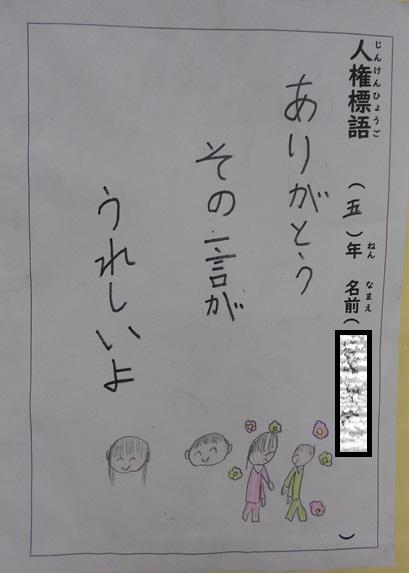 人権標語 (五)年 名前( )
じんけんひょうご ねん なまえ
ありがとう
その一言が
うれしいよ